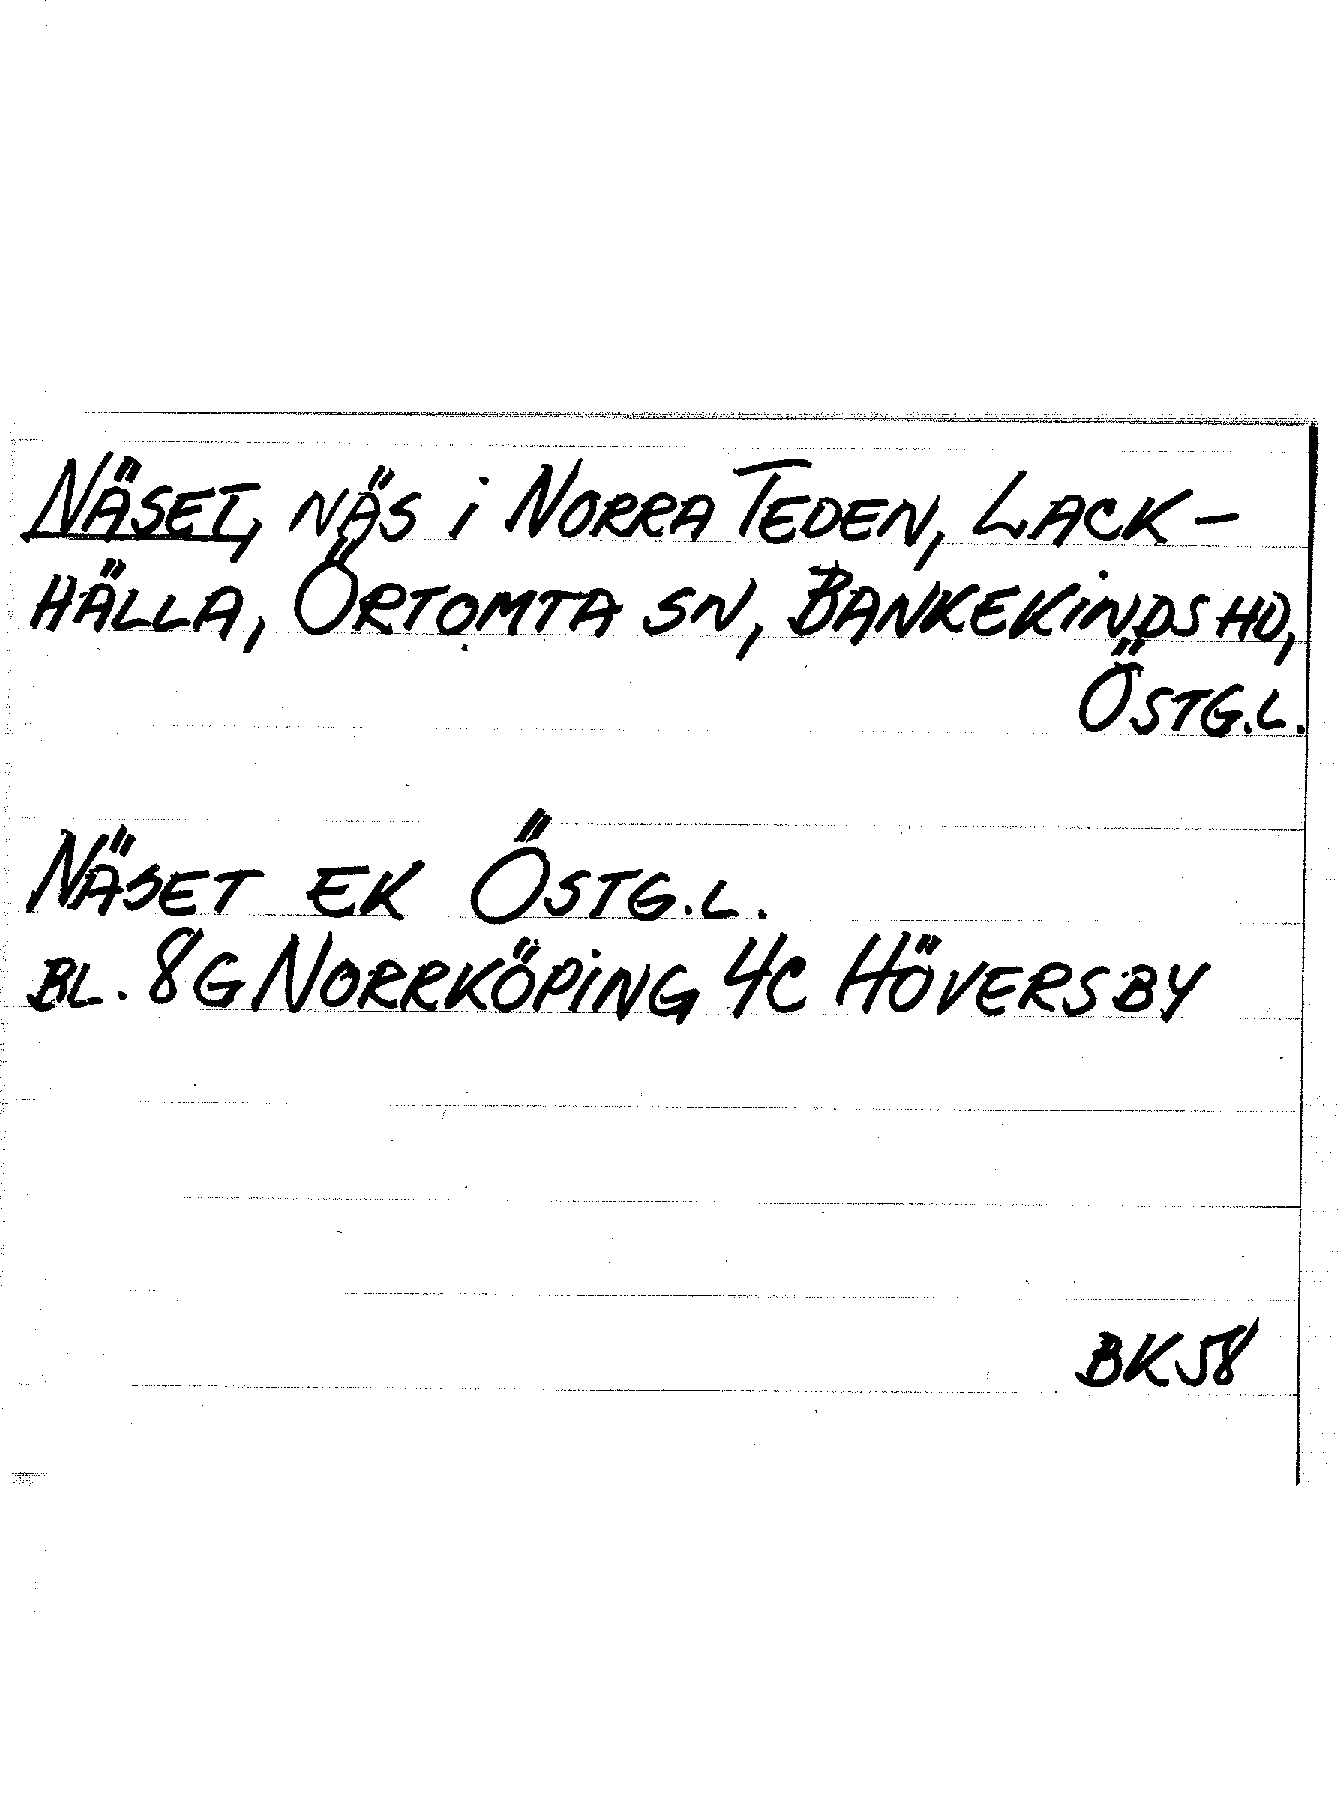 NÄSET, NÄS i NORRA TEDEN, LACK-
HÄLLA, ÖRTOMTA SN, BANKEKINDS HD,
ÖSTG.L.
NÄSET EK ÖSTG.L.
BL. 8G NORRKÖPING 4C HÖVERSBY
BK58